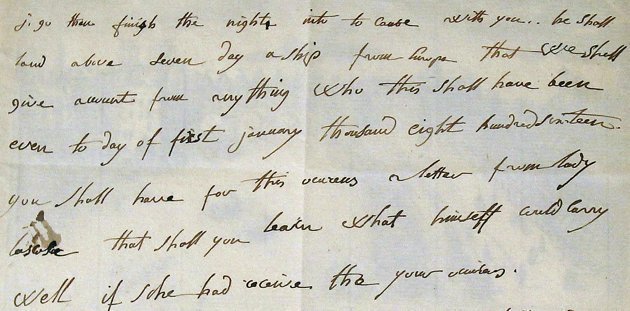 j. go then finish the night, into to cause with you.. he shall
land above seven day a ship from Europe that we shall
give account from any thing who this shall have been
even to day of first january thousand eight hundred sixteen.
you shall have for this ocurens a letter from lady
that shall you learn what himself could carry
well if sche had receive the your ocurens.